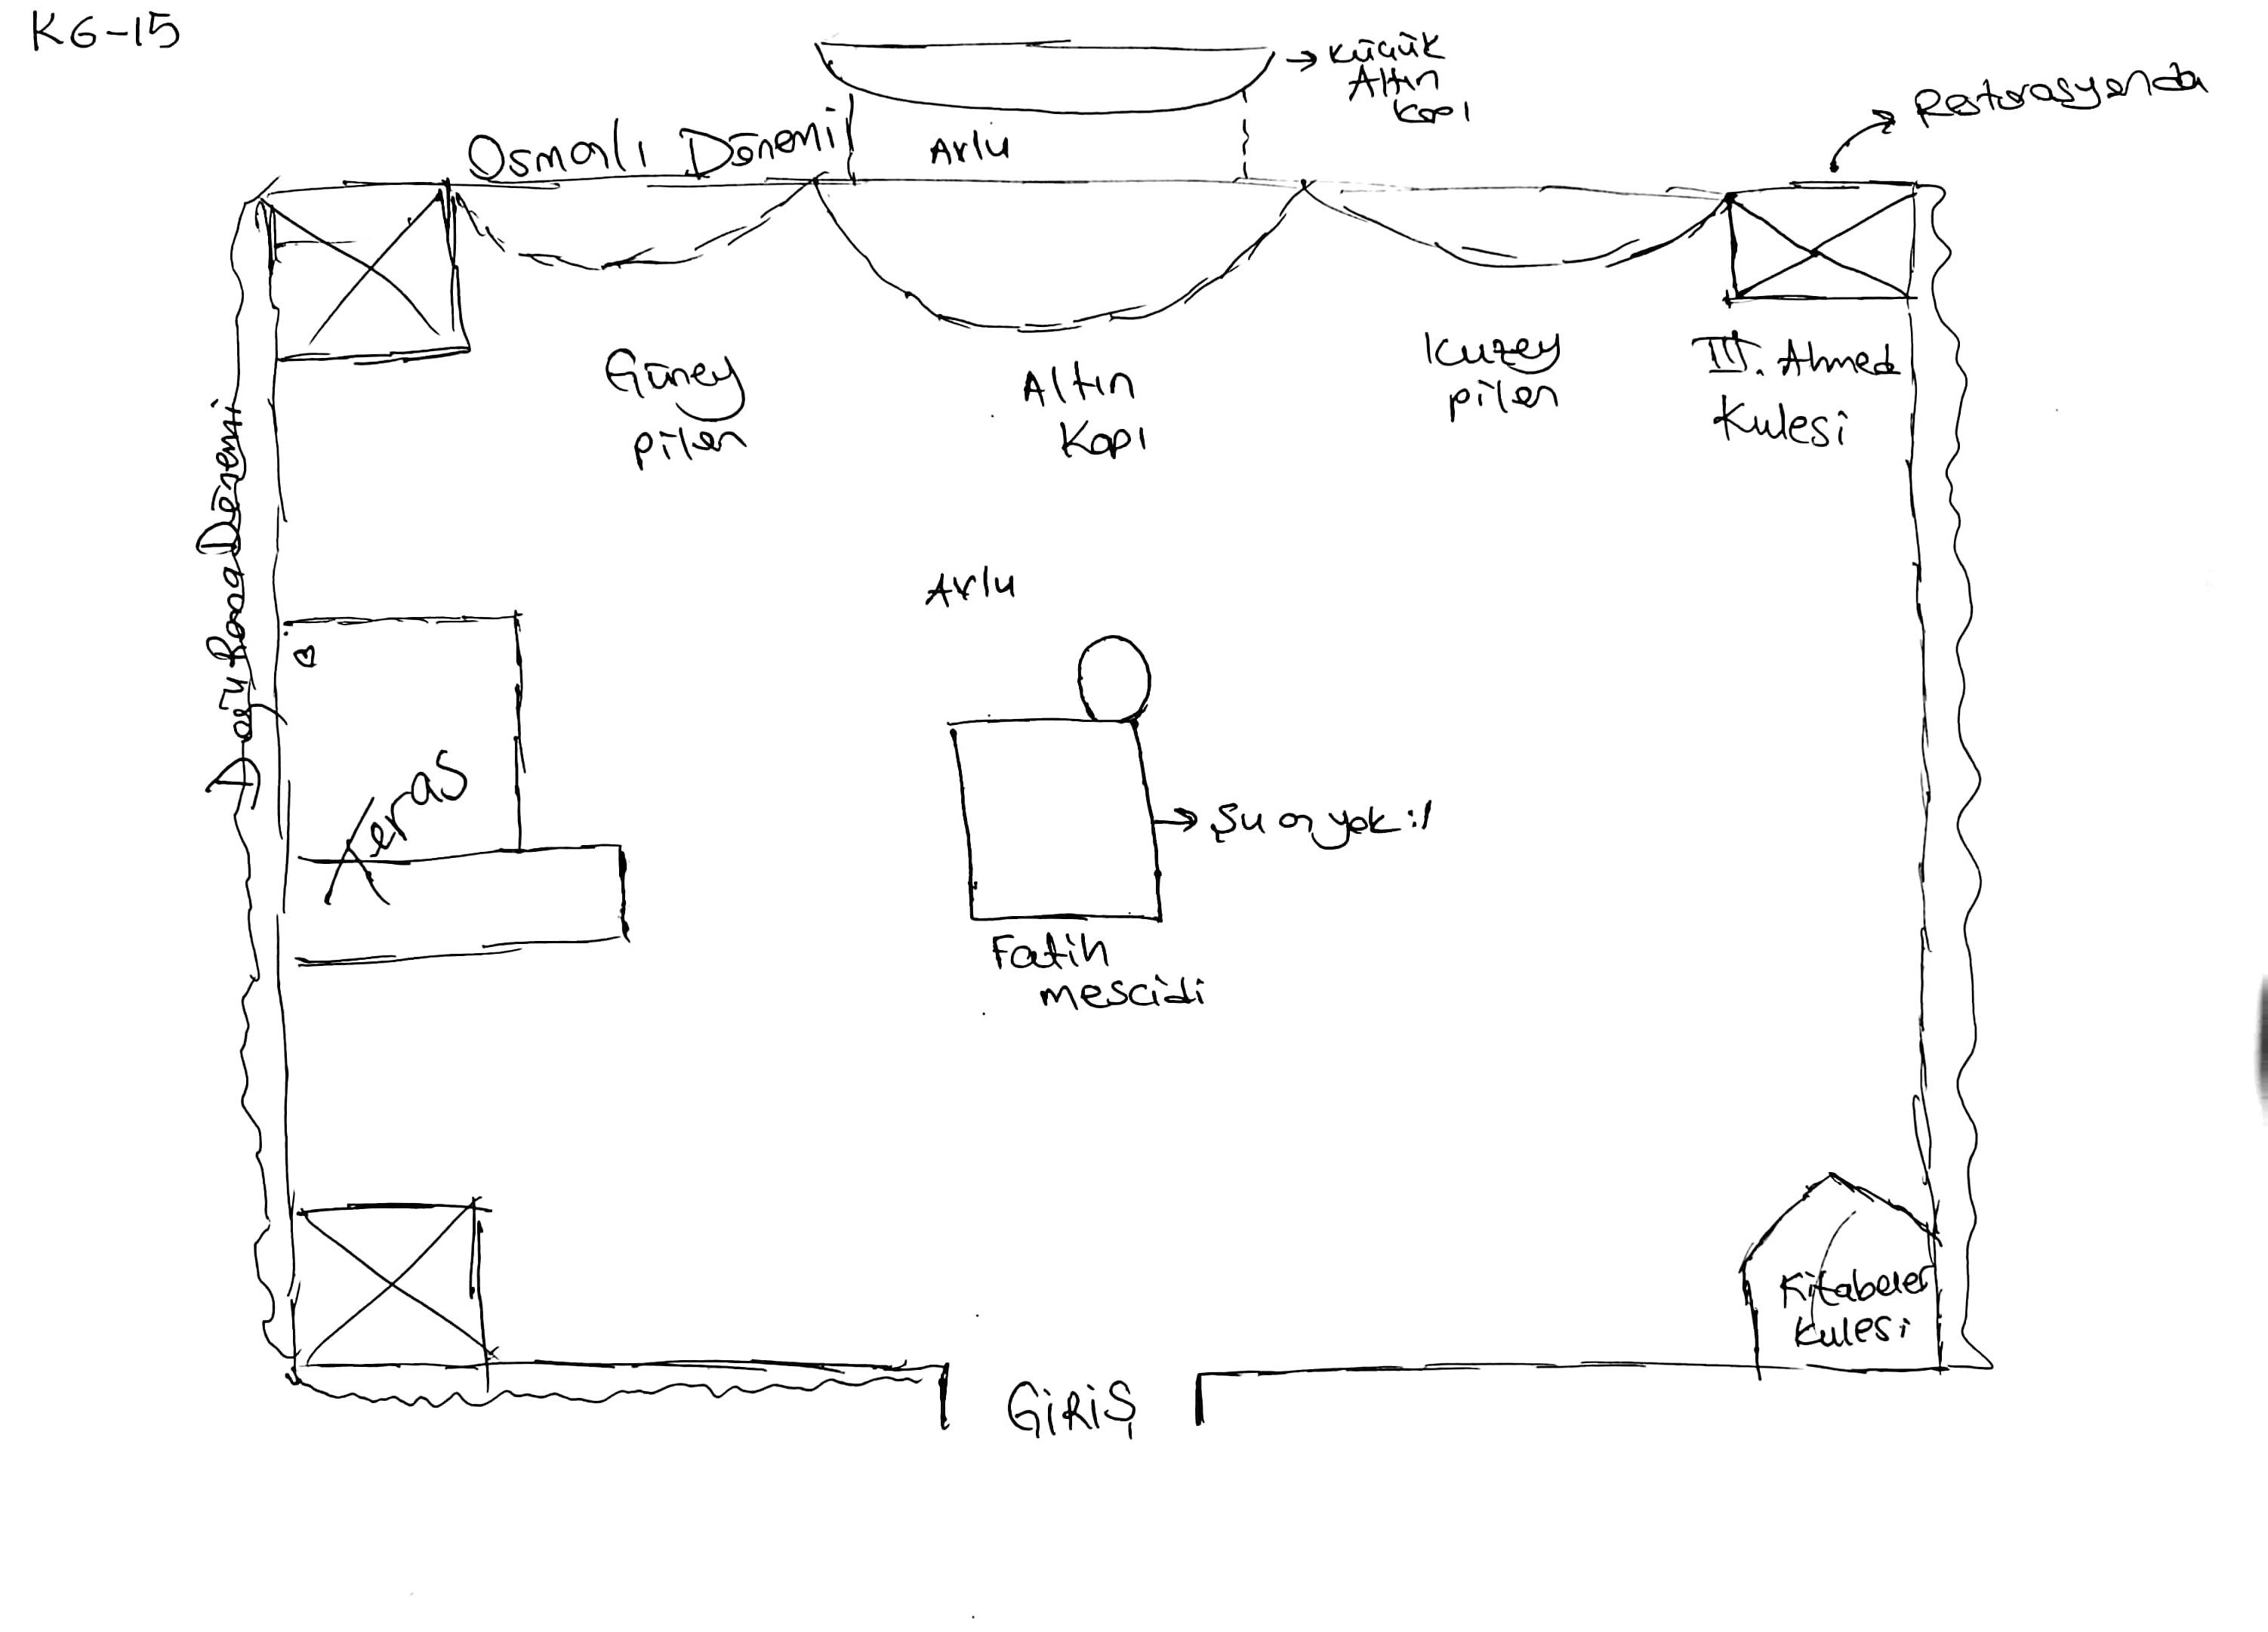 KG-15
Küçük
Altın
Kapı
Restorasyonda
Osmanlı Dönemi
Avlu
Güney
pilon
Altın
Kapı
Kuzey
pilon
III. Ahmed
Kulesi
Doğu Roma Dönemi
Avlu
Teras
Şu an yok :/
Fatih
mescidi
Kitabeler
Kulesi
GİRİŞ